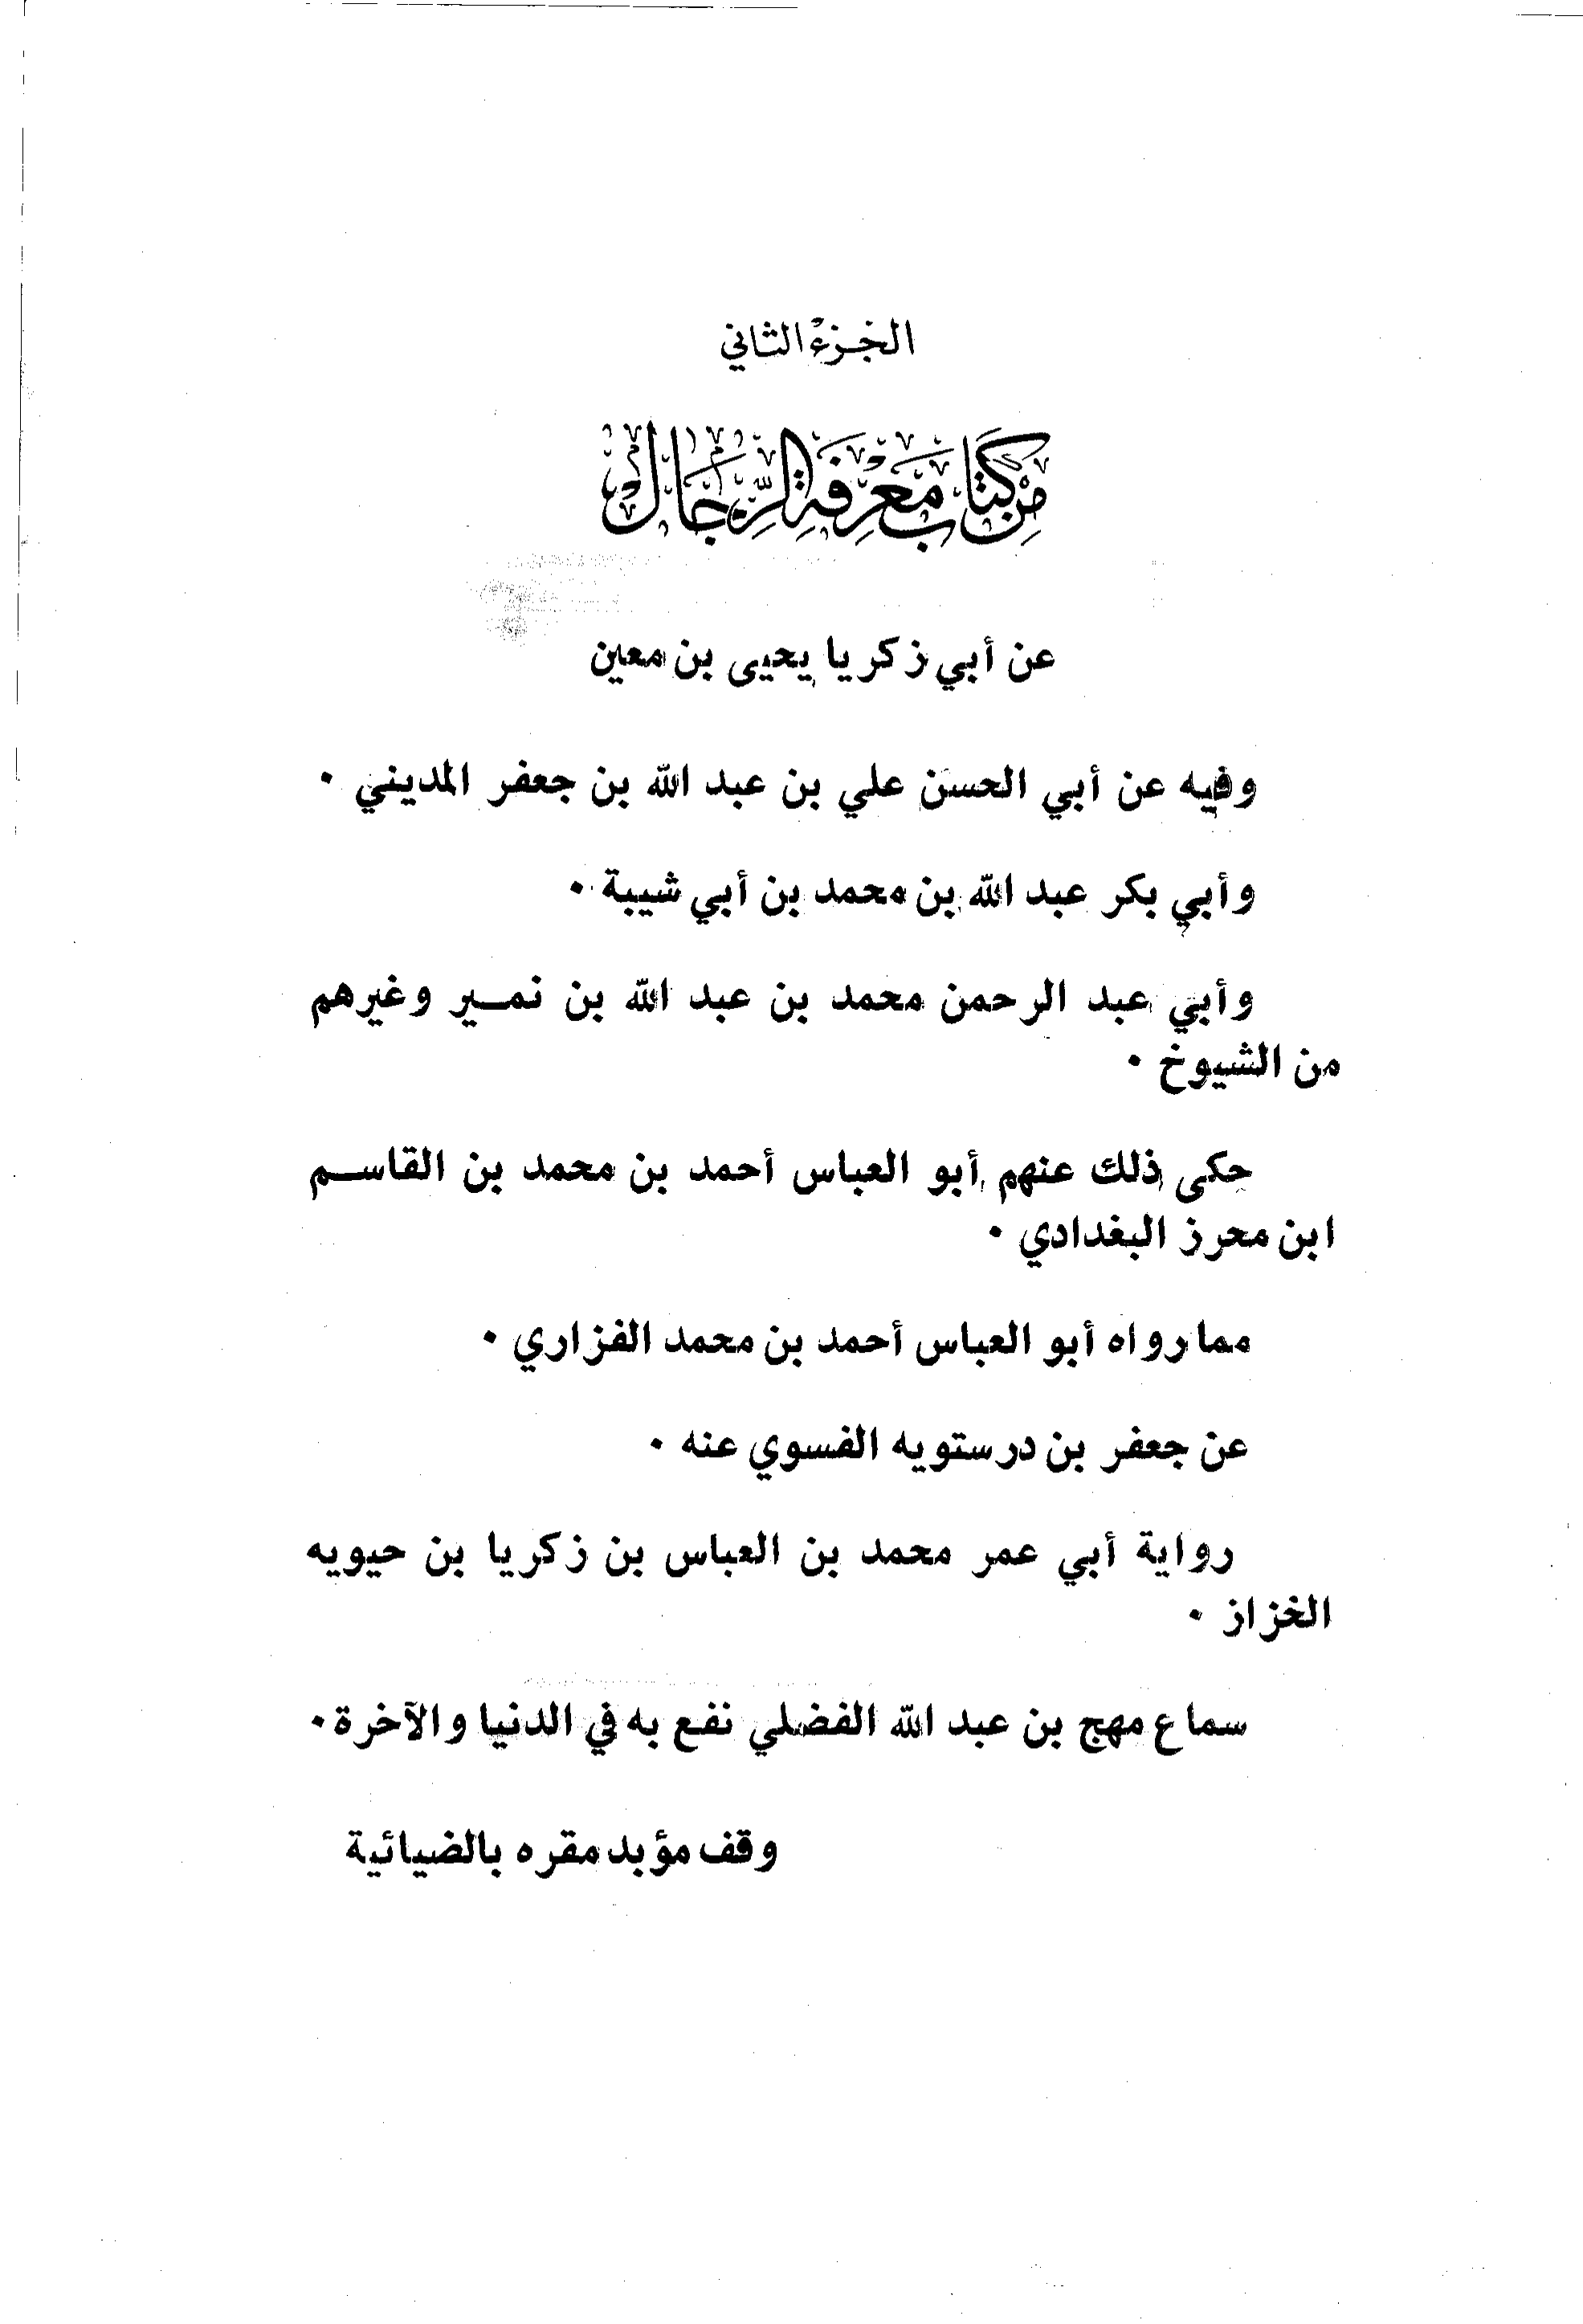 الجزء الثاني
من كتاب معرفة الرجال
عن أبي زكريا يحيى بن معين
وفيه عن أبي الحسن علي بن عبد الله بن جعفر المديني ٠
وأبي بكر عبد الله بن محمد بن أبي شيبة ٠
وأبي عبد الرحمن محمد بن عبد الله بن نمير وغيرهم
من الشيوخ ٠
حكى ذلك عنهم أبو العباس أحمد بن محمد بن القاسم
ابن محرز البغدادي ٠
مما رواه أبو العباس أحمد بن محمد الفزاري ٠
عن جعفر بن درستويه الفسوي عنه ٠
رواية أبي عمر محمد بن العباس بن زكريا بن حيويه
الخزاز ٠
سماع مهج بن عبد الله الفضلي نفع به في الدنيا والآخرة ٠
وقف مؤبد مقره بالضيائية